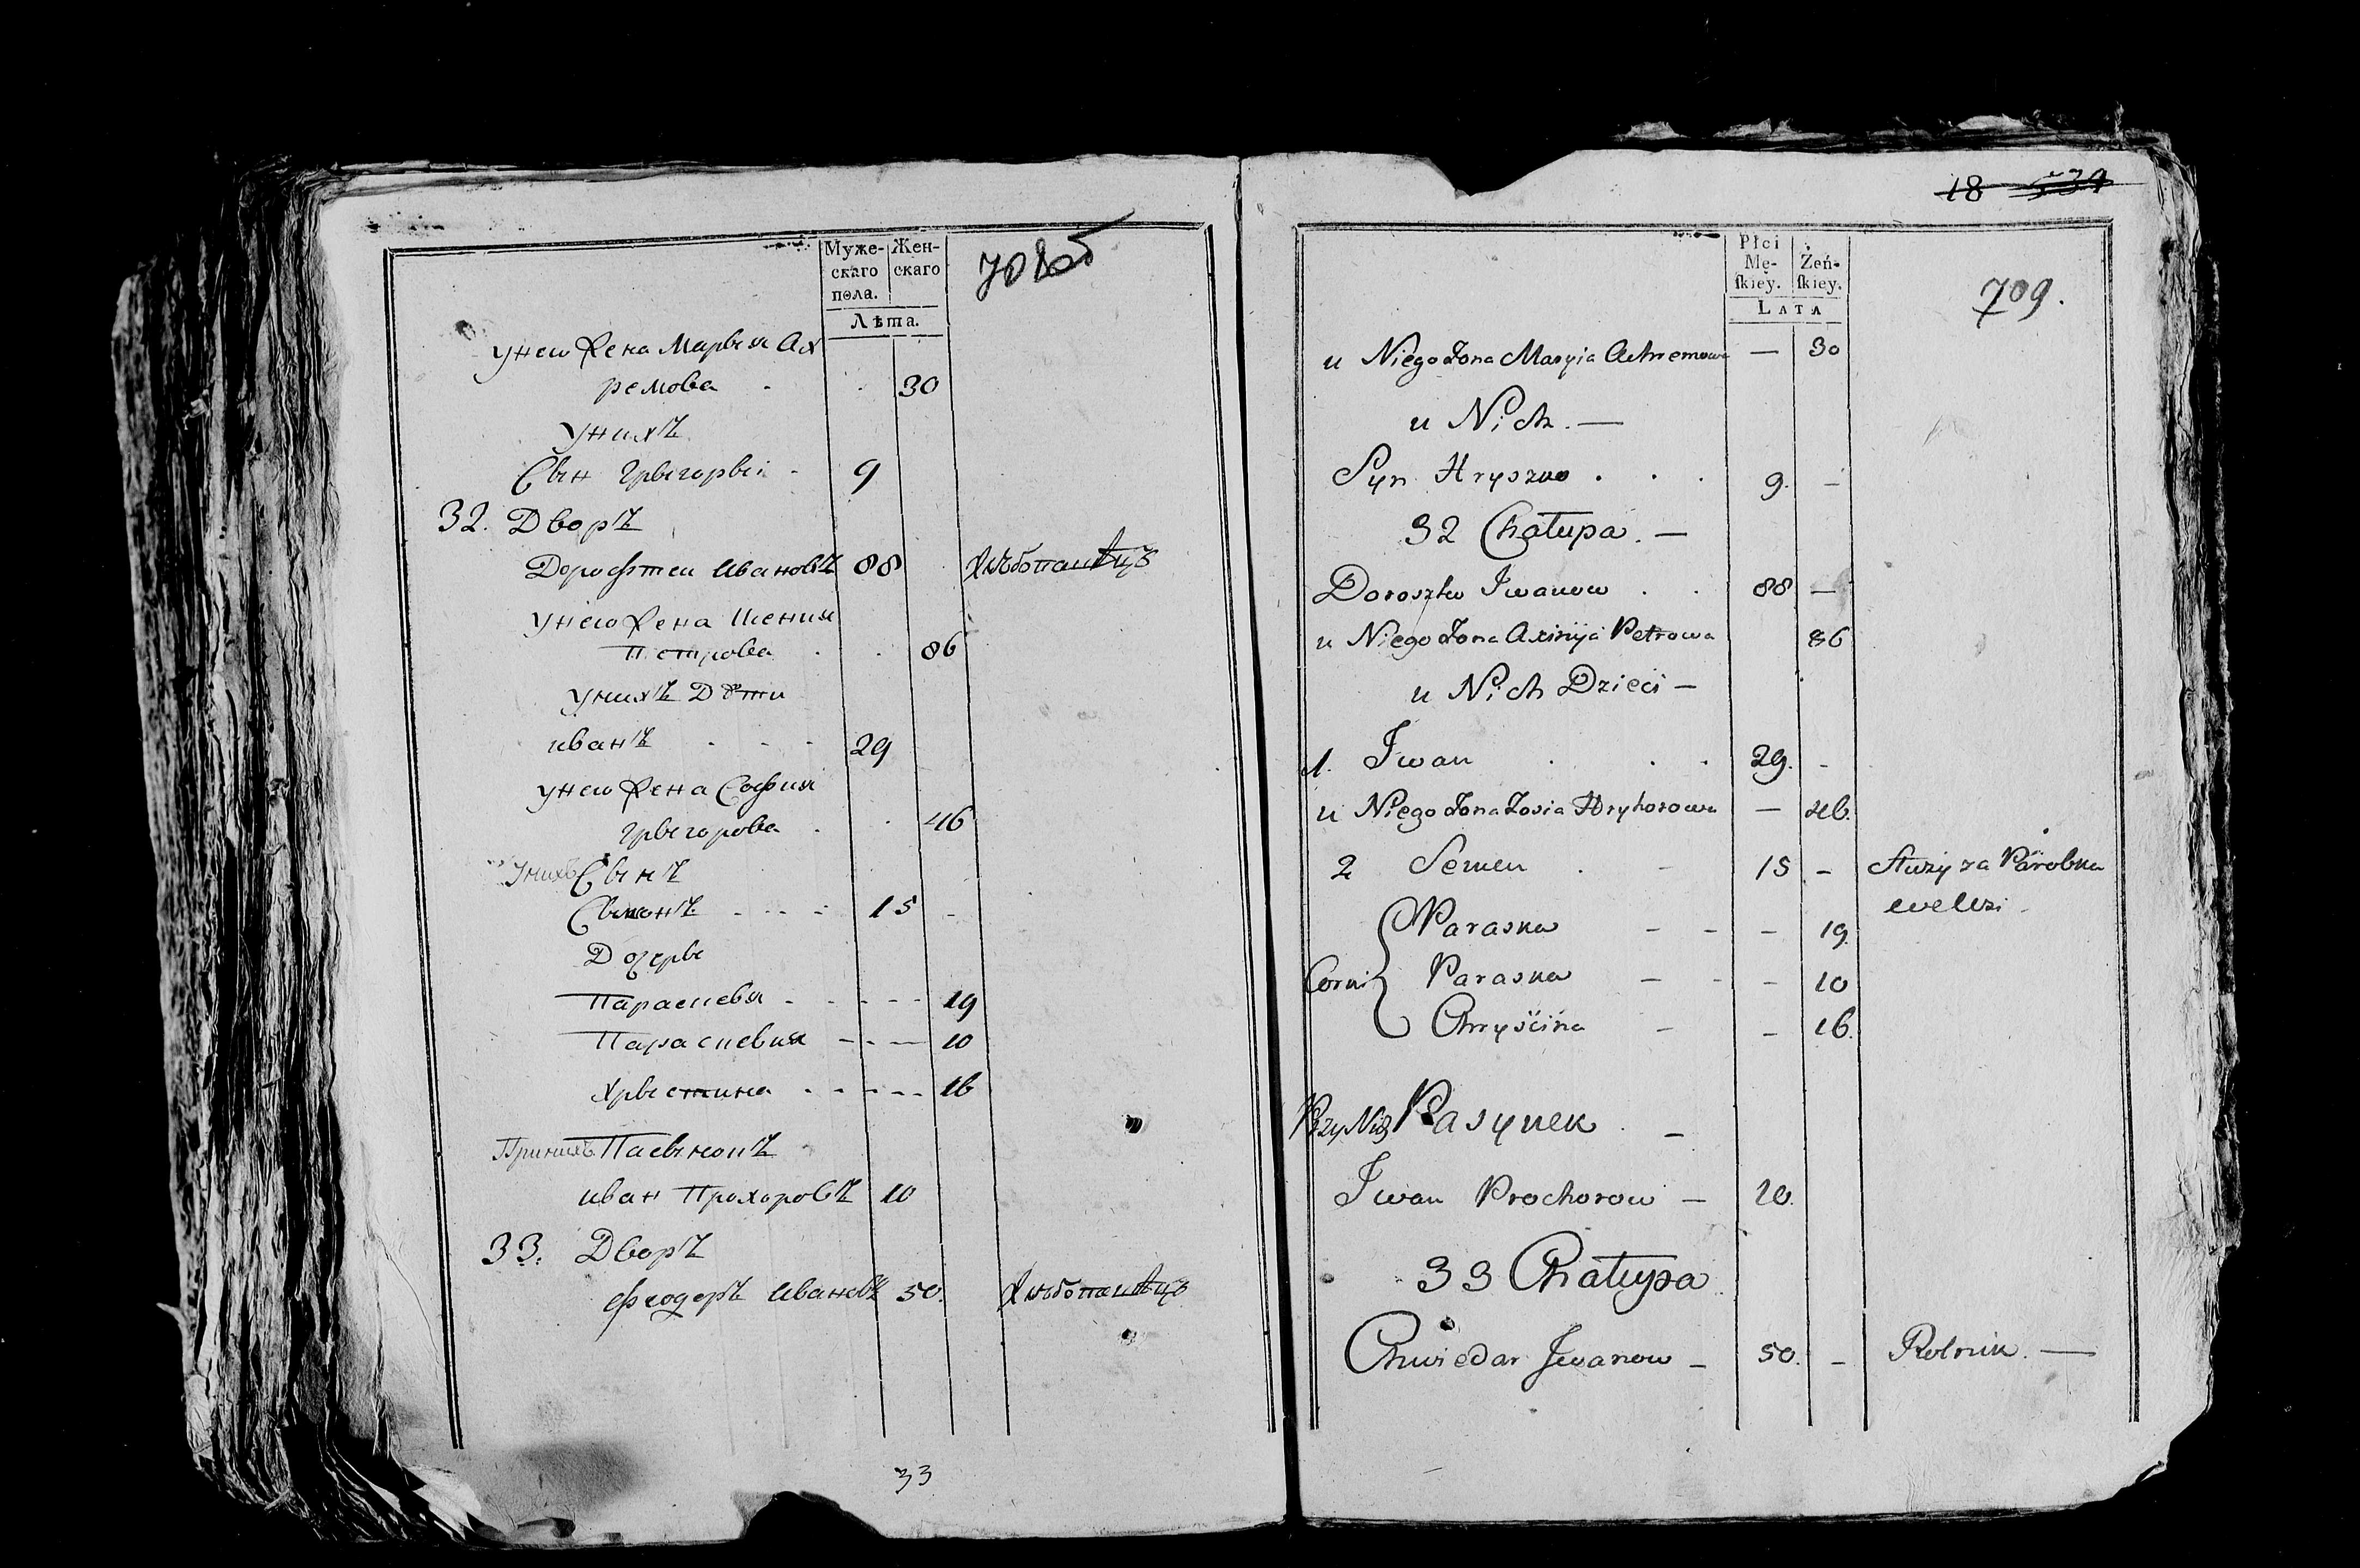 Муже-
скаго
пола.
Жен-
скаго
Лѣта.
708об
унего Жена Марья Ах
ремова . . 30
унихЪ
Сын Грыгорыі - 9
32. ДворЪ
Дорофтеи ИвановЪ 88 Хлѣбопашецъ
унего Жена Ксения
Петрова . . 86
унихЪ Дѣти
иванЪ . - - 29
унего Жена София
Грыгорова . . 46
Унихъ СынЪ
СымонЪ - - - 15 -
Дочеры
Параскевия - - - - - 19
Параскевия - - - 10
Хрыстина . - - - - 16
Принихъ ПасынокЪ
иван ПрохоровЪ 10
33. ДворЪ
ФеодорЪ ИвановЪ 50. Хлѣбопашецъ
33
18
Płci
Mę-
ſkiey.
Żeń-
ſkiey.
LATA
709.
u Niego Żona Maryia Achremowa — 30
u Nich. —
Syn Hryszko . . . 9. -
32 Chałupa. —
Doroszko Iwanow . . 88 —
u Niego Żona Axinija Petrowa 86
u Nich Dzieci —
1. Iwan . . . 29. -
u Niego Żona Zosia Hryhorowa — 46.
2 Semen . - 15 - Służy za Parobka
Paraska - - - 19.
Corki Paraska - - - 10
Chryścina - - 16.
Przy Nich Pasynek . -
Iwan Prochorow - 10.
33 Chałupa
Chwiedar Iwanow - 50. - Rolnik. —